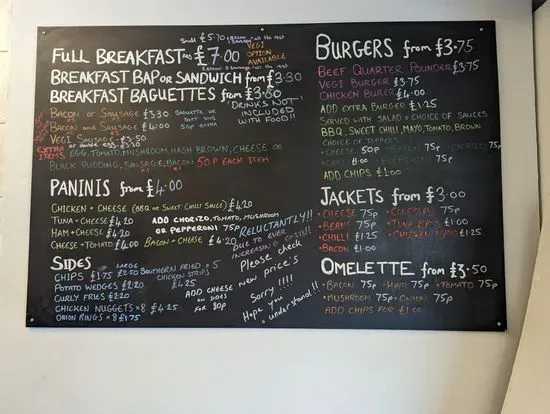 Small £5.70
FULL BREAKFAST £7.00
VEGI OPTION AVAILABLE
BREAKFAST BAP OR SANDWICH from £3.30
BREAKFAST BAGUETTES from £3.80
"DRINKS NOT INCLUDED WITH FOOD!!
BACON OR SAUSAGE £3.30 BAGUETTE OR
BACON AND SAUSAGE £4.00 50p EXTRA
VEGI SAUSAGE £3.50
EXTRA ITEMS EGG, TOMATO, MUSHROOM, HASH BROWN, CHEESE OR
BLACK PUDDING, SAUSAGE, BACON 50p EACH ITEM
PANINIS from £4.00
CHICKEN + CHEESE (BBQ OR SWEET CHILLI SAUCE) £4.20
TUNA + CHEESE £4.20
HAM + CHEESE £4.20
ADD CHORIZO, TOMATO, MUSHROOM
OR PEPPERONI 75p
CHEESE + TOMATO £4.00 BACON + CHEESE £4.20
RELUCTANTLY!!
DUE TO EVER
INCREASING COSTS!!
Please check
new price's
Sorry !!!!
Hope you
understand!!
SIDES
LARGE
CHIPS £1.75 £2.50
POTATO WEDGES £2.20
CURLY FRIES £2.20
CHICKEN NUGGETS x8 £4.25
ONION RINGS x8 £1.75
SOUTHERN FRIED x5
CHICKEN STRIPS
£4.25
ADD CHEESE
ON SIDES
FOR 80p
BURGERS from £3.75
BEEF QUARTER POUNDER £3.75
VEGI BURGER £3.75
CHICKEN BURGER £4.00
ADD EXTRA BURGER £1.25
SERVED WITH SALAD + CHOICE OF SAUCES
BBQ, SWEET CHILLI, MAYO, TOMATO, BROWN
CHOICE OF TOPPER
CHEESE 50p BACON CHORIZO 75p
CHILLI £1.00 PEPPERONI 75p
ADD CHIPS £1.00
JACKETS from £3.00
CHEESE 75p
BEANS 75p
CHILLI £1.25
BACON £1.00
COLESLAW 75p
TUNA MAYO £1.00
CHICKEN MAYO £1.25
OMELETTE from £3.50
BACON 75p HAM 75p TOMATO 75p
MUSHROOM 75p ONION 75p
ADD CHIPS FOR £1.00